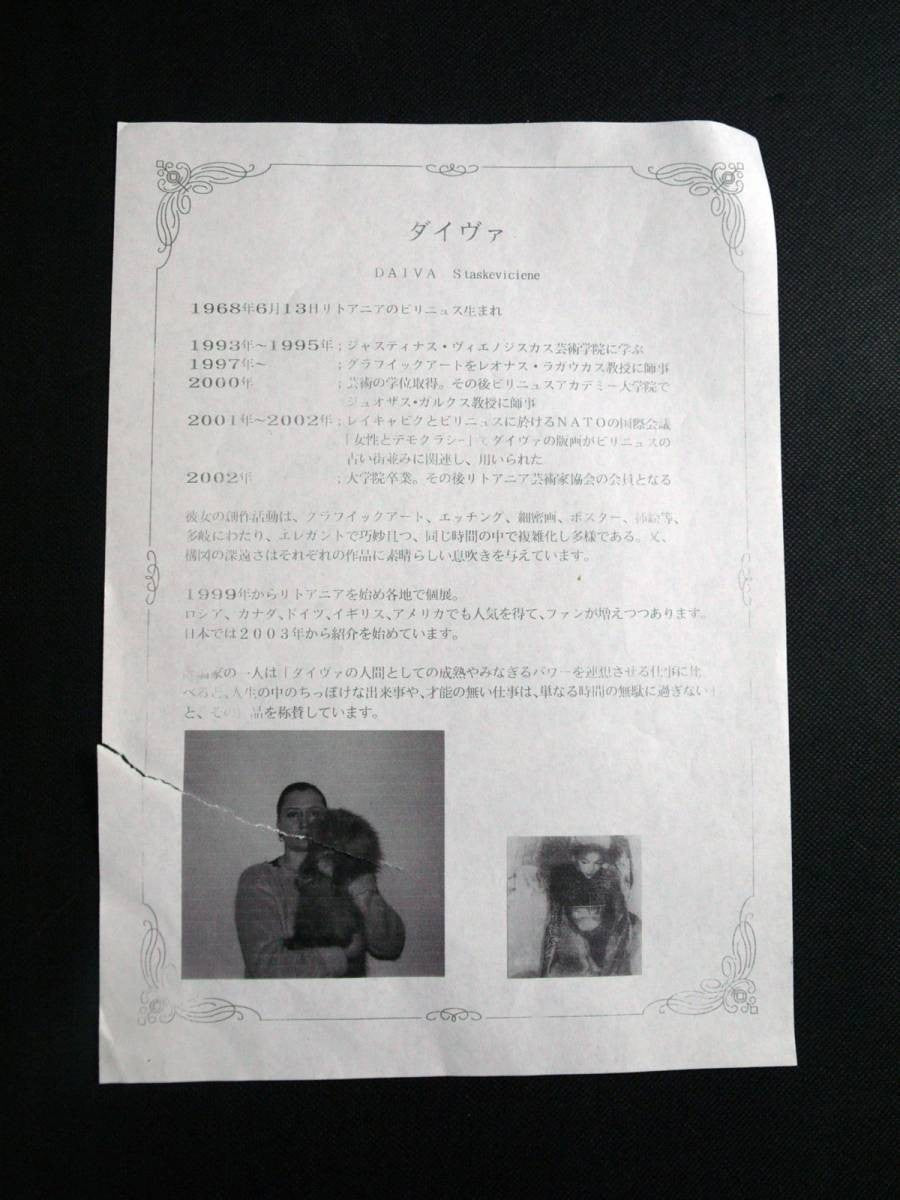 ダイヴァ
DAIVA Staskeviciene
1968年6月13日リトアニアのビリニュス生まれ
1993年~1995年;ジャスティナス・ヴィエノジスカス芸術学院に学ぶ
1997年~ ;グラフイックアートをレオナス・ラガウカス教授に師事
2000年 ;芸術の学位取得。その後ビリニュスアカデミー大学院で
ジュオザス・ガルクス教授に師事
2001年~2002年;レイキャビクとビリニュスに於けるNATOの国際会議
「女性とデモクラシー」でダイヴァの版画がビリニュスの
古い街並みに関連し、用いられた
2002年 ;大学院卒業。その後リトアニア芸術家協会の会員となる
彼女の創作活動は、グラフイックアート、エッチング、細密画、ポスター、 等、
多岐にわたり、エレガントで巧妙且つ、同じ時間の中で複雑化し多様である。又、
構図の深遠さはそれぞれの作品に素晴らしい息吹きを与えています。
1999年からリトアニアを始め各地で個展。
ロシア、カナダ、ドイツ、イギリス、アメリカでも人気を得て、ファンが増えつつあります。
日本では2003年から紹介を始めています。
家の一人は「ダイヴァの人間としての成熟やみなぎるパワーを連想させる仕事に比
べると、人生の中のちっぽけな出来事や、才能の無い仕事は、単なる時間の無駄に過ぎない」
と、その 品を称賛しています。